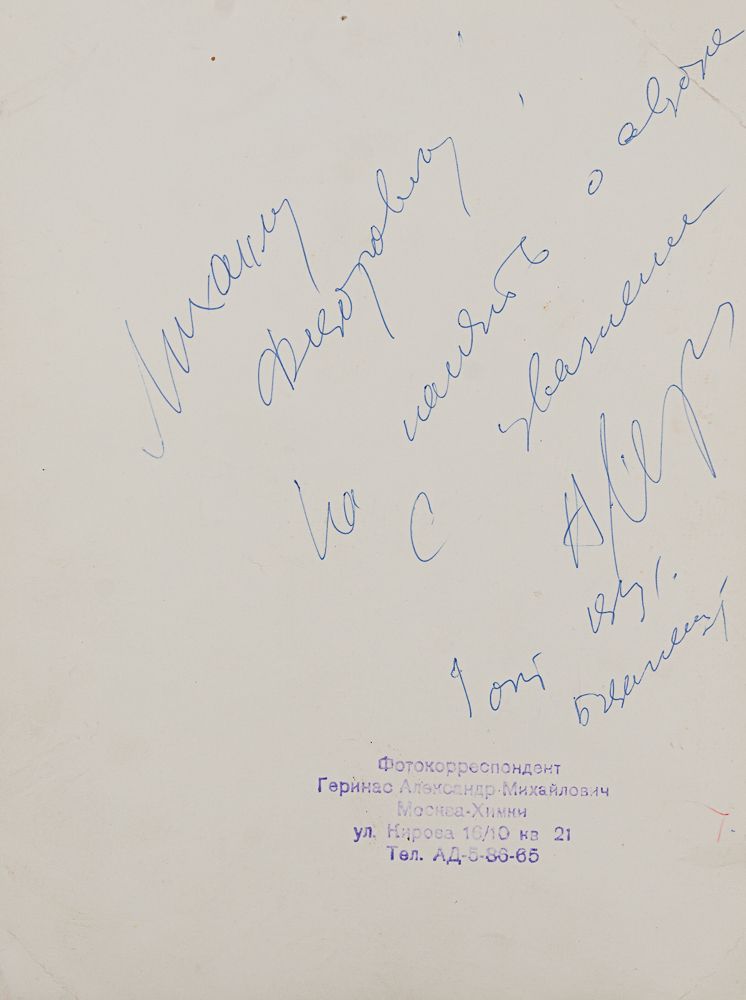 Михаилу
Федоровичу
На память о авторе
С уважением
Фотокорреспондент
Геринас Александр Михайлович
Москва-Химки
ул. Кирова 16/10 кв 21
Тел. АД-5-86-65